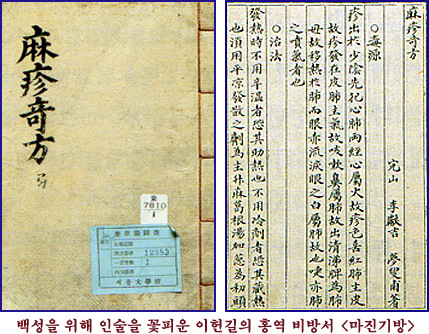 麻疹奇方
奎
7810
1
奎章閣圖書
12353
1
서울大學校
麻疹奇方
完山 李獻吉 夢叟甫著
○毒源
疹出於少陰先犯心肺兩經心屬火故疹色紅肺主皮
故疹發在皮肺主氣故咳嗽鼻屬肺故出清涕脾為肺
母故移熱於肺而眼赤流淚眼之白屬肺故也亦肺
之氣者也
○治法
發熱時不用辛溫者恐其助熱也不用冷劑者恐其藏熱
也須用平凉發散之劑為主升麻葛根湯加葱為初頭
백성을 위해 인술을 꽃피운 이헌길의 홍역 비방서 <마진기방>